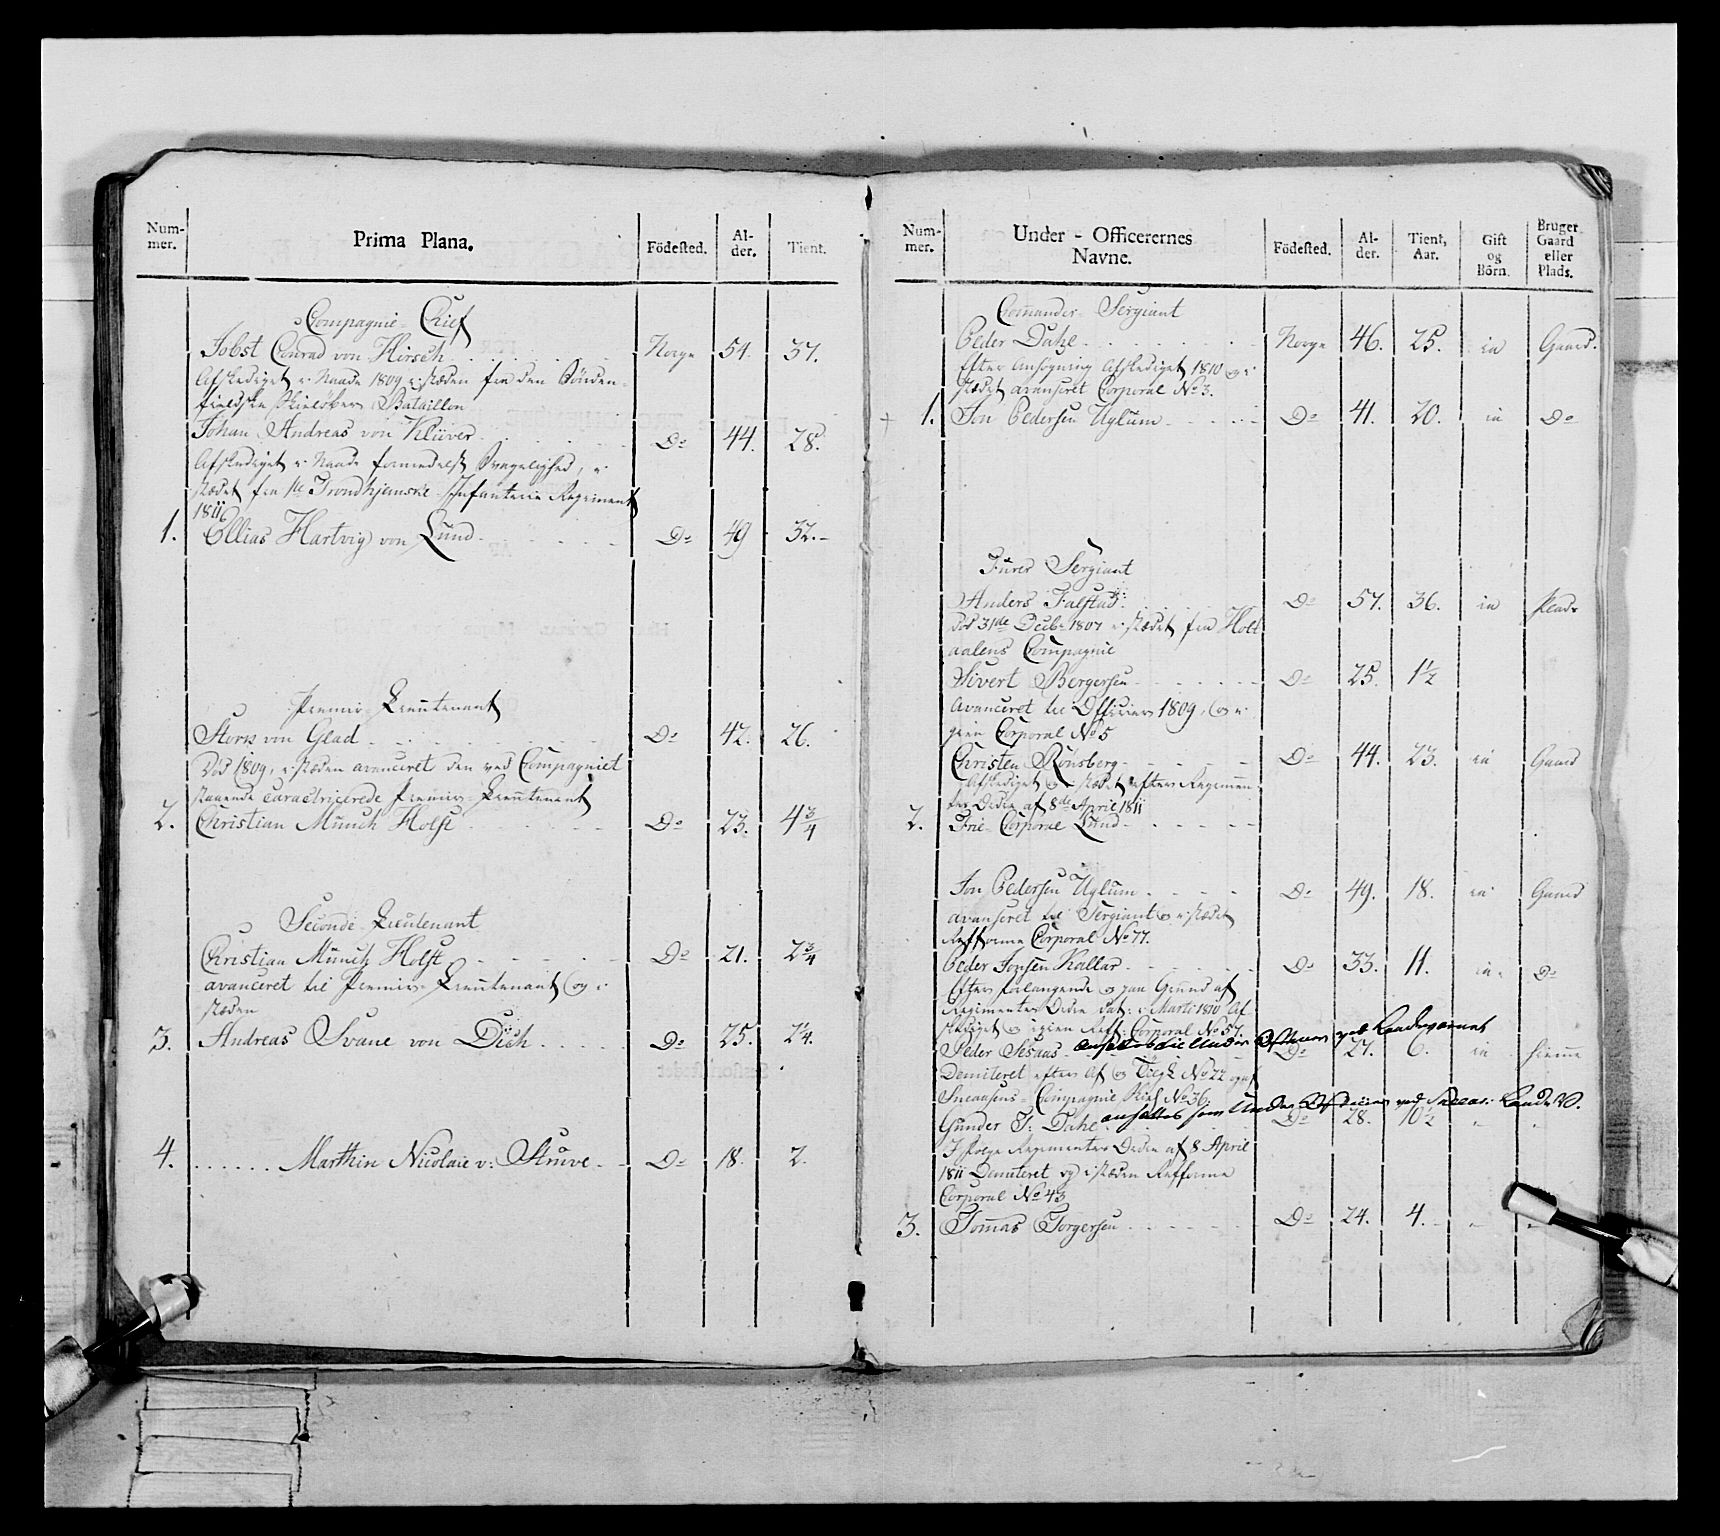 Num-
mer.
Prima Plana.
Födested.
Al-
der.
Tient.
Compagnie-Chef
Jobst Conrad von Hirsch Norge 54. 37.
Afskediget i Naade 1809 i stæden fra den Sönden-
fieldske Skielöber Bataillon
Johan Andreas von Klüver Do 44. 28.
Afskediget i Naade formedelst Svagelighed, i
stædet fra 1te Trondhjemske Infanterie Regiment
1811
1. Ellias Hartvig von Lund Do 49 32.
Premier-Lieutenant
Storm von Glad Do 42. 26.
Död 1809, i stæden avanceret den ved Compagniet
staaende caractricerede Premier-Lieutenant
2. Christian Munch Holst Do 23. 4 3/4
Seconde-Lieutenant
Christian Münch Holst Do 21. 2 3/4
avanceret til Premier-Lieutenant og i
stæden
3. Andreas Svane von Düch Do 25. 2 1/4.
4. Marthin Nicolaie v: Struve Do 18. 2.
Num-
mer.
Under-Officerernes
Navne.
Födested.
Al-
der.
Tient,
Aar.
Gift
og
Börn.
Bruger
Gaard
eller
Plads.
Commander-Sergiant
Peder Dahl Norge 46. 25. ia Gaard.
Efter Ansögning Afskediget 1810 og i
stædet avanseret Corporal No 3.
1. Jon Pedersen Uglum Do 41. 20. ia Do
Furer Sergiant
Anders Falstad Do 57. 36. ia Plads
Död 31de Decbr 1807 i stædet fra Holt
aalens Compagnie
Sivert Bergersen Do 25. 1 1/2
Avanceret til Officier 1809, og i
gien Corporal No 5
Christen Rönsberg Do 44. 23. ia Gaard
Afskediget og i stædet efter Regimen
ter Ordre af 8de April 1811
2. Frie-Corporal Lund
Jon Pedersen Uglum Do 49. 18. ia Gaard
avanseret til Sergiant og i stædet
Refforme Corporal No 77.
Peder Jonsen Kallar Do 33. 11. ia. Do
Efter forlangende og paa Grund af
Regimenter Ordre dat: Marti 1810 Af
skediget og igien Reff: Corporal No 57.
Peder Sesaas ansættes til Under Officeer ved Landeværnet Do 27. 6. ia hiemme
Demiteret efter Af og No 22 og af
Sneaasens-Compagnie No 36.
Gunder T: Dahl ansættes som Under Officier ved Sneaas: Lande V. Do 28. 10 1/2
I fölge Regimenter Ordre af 8 April
1811 Demiteret og i stæden Refforme
Corporal No 43
3. Tomas Torgersen Do 24. 4.